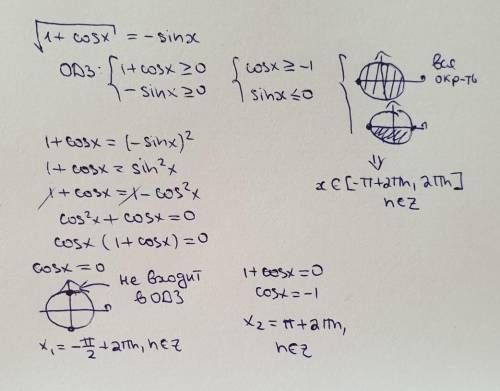 √1+cosx = -sinx
ОДЗ: { 1+cosx ≥ 0 { cosx ≥ -1 {
-sinx ≥ 0 sinx ≤ 0
вся окр-ть
⇓
x ∈ [-π+2πn, 2πn]
n∈Z
1+cosx = (-sinx)²
1+cosx = sin²x
1+cosx = 1-cos²x
cos²x + cosx = 0
cosx (1+cosx) = 0
cosx = 0
не входит
в ОДЗ
x₁ = -π/2 + 2πn, n∈Z
1+cosx = 0
cosx = -1
x₂ = π+2πn,
n∈Z